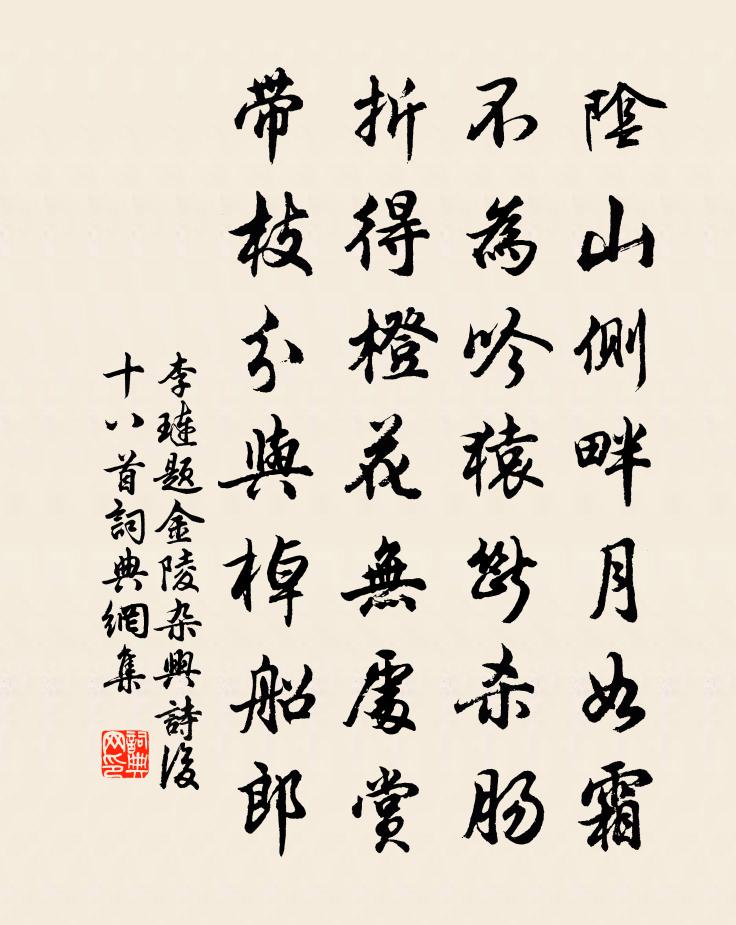 陰山側畔月如霜
不為吟猿斷杀肠
折得橙花無處賞
带枝分與棹船郎
李璉题金陵杂興詩後
十八首詞典網集
詞典网印